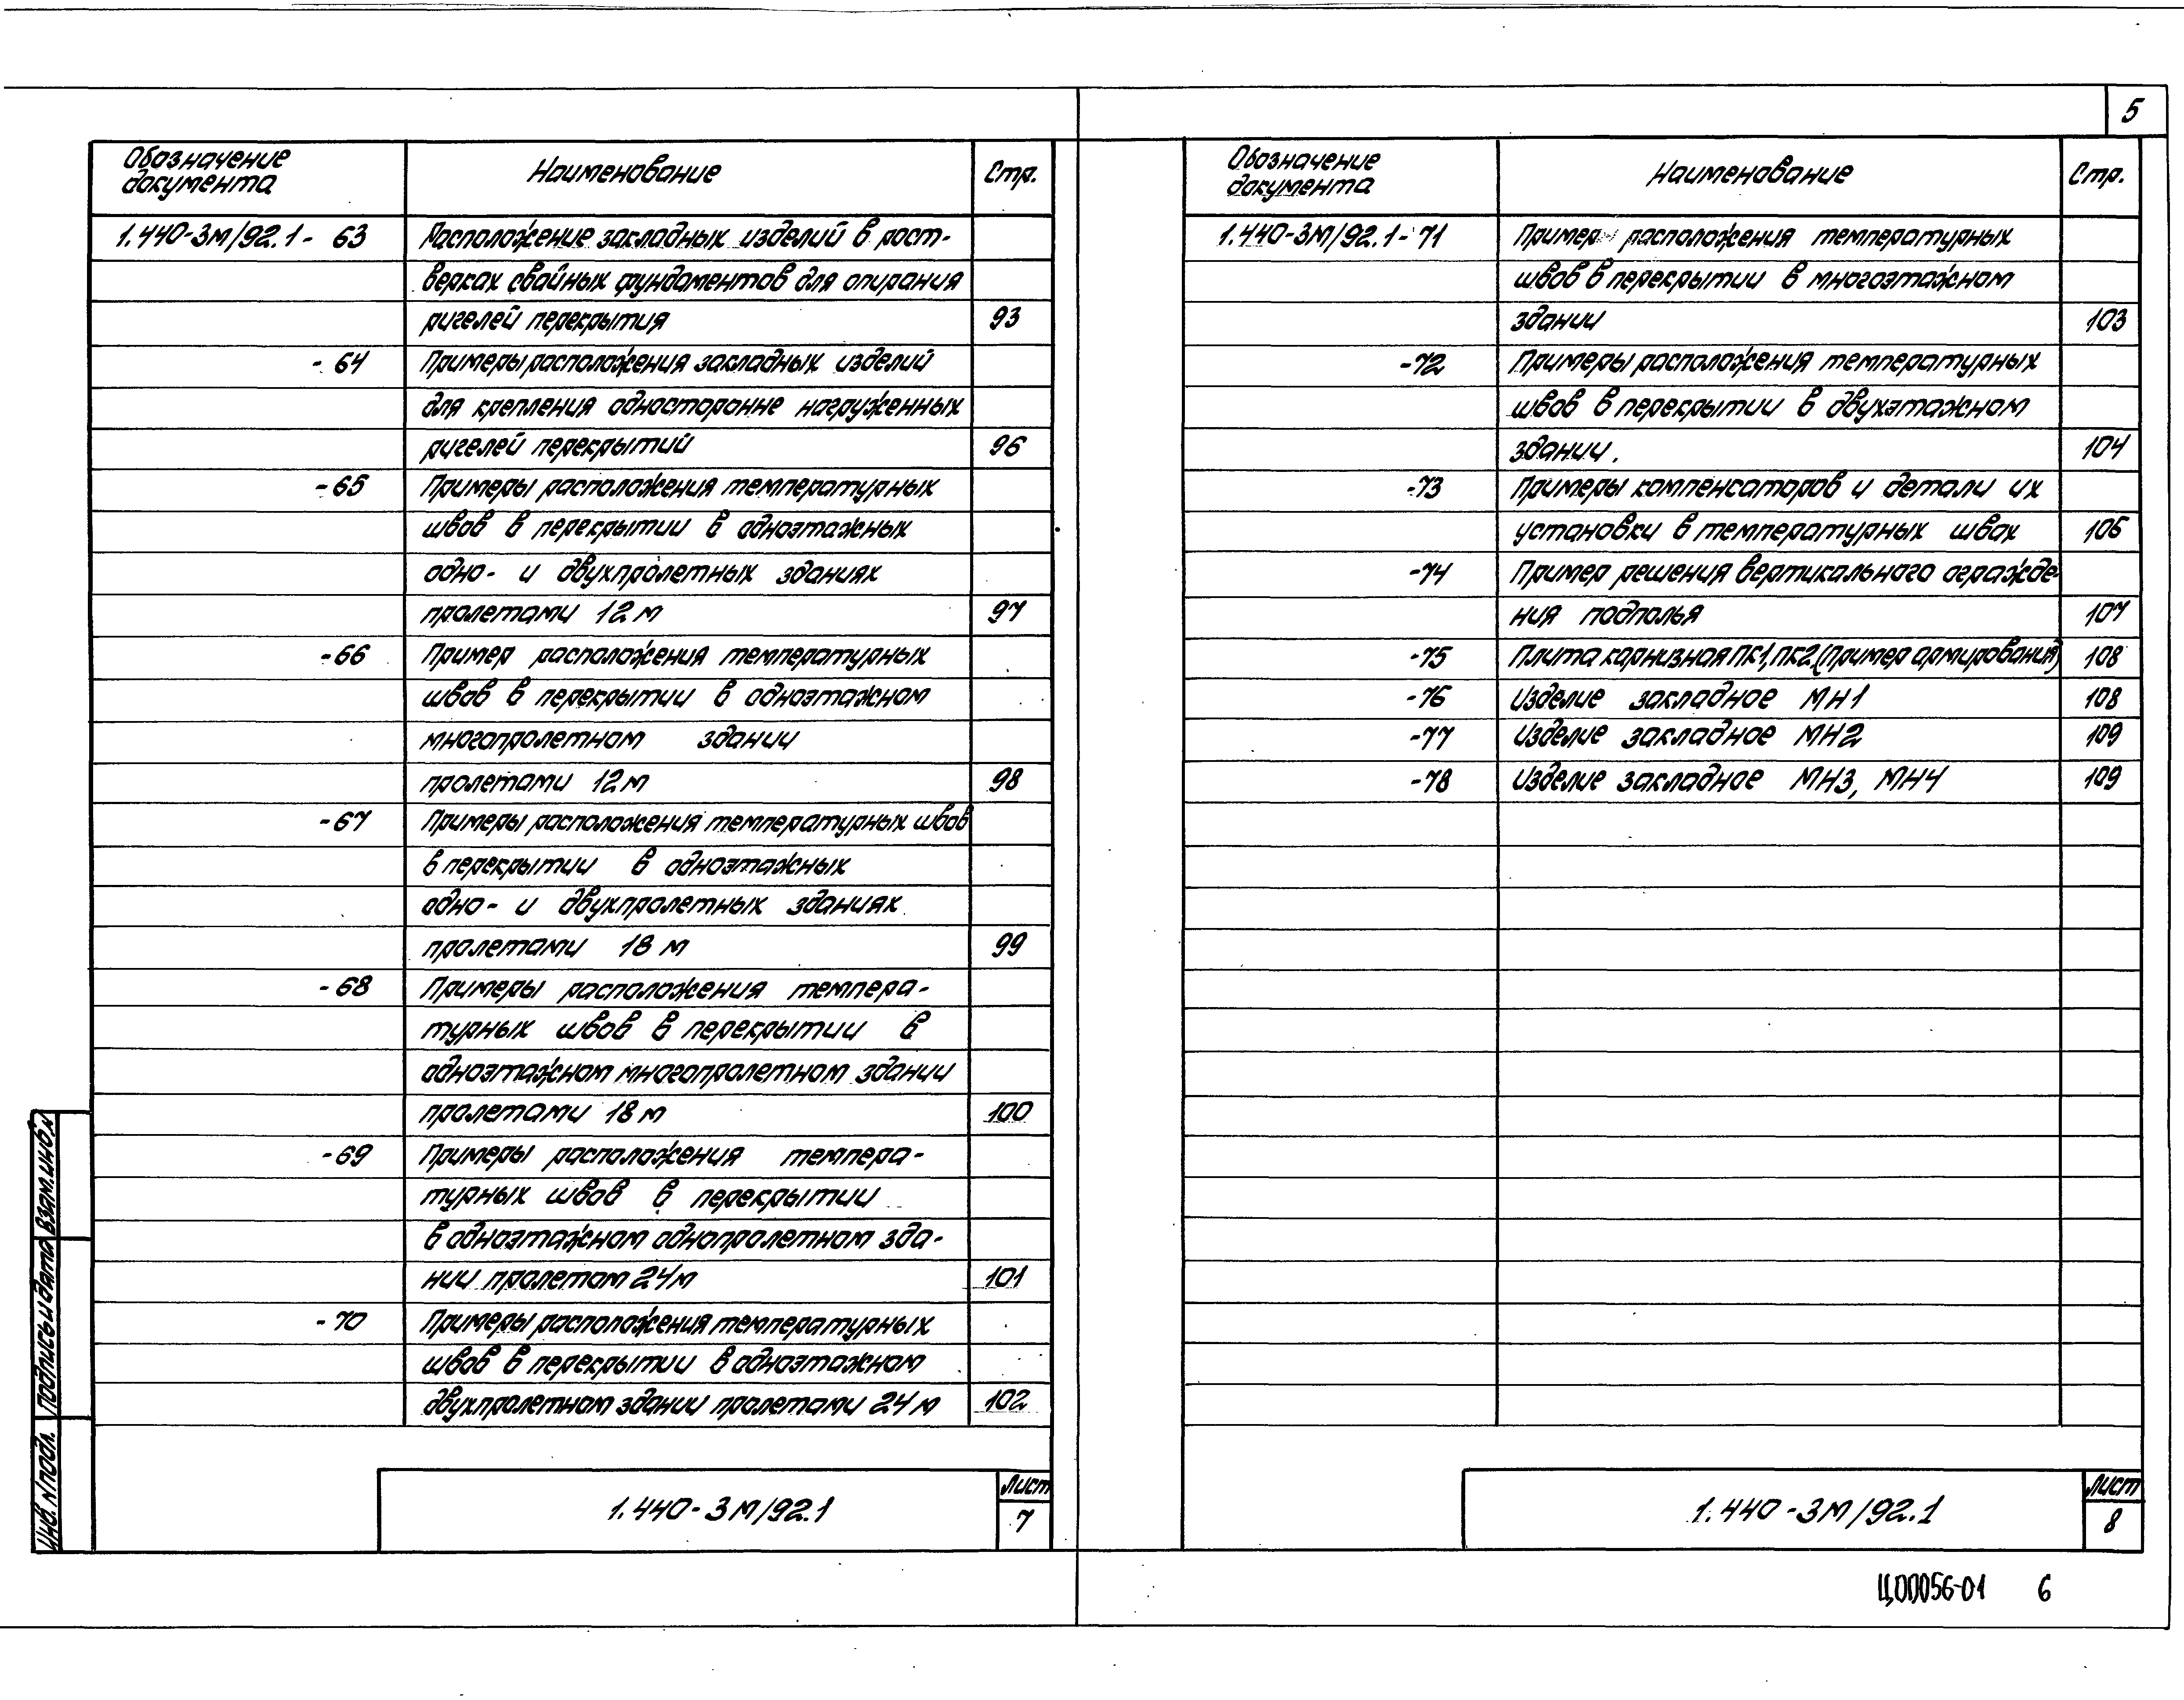 5
Обозначение документа Наименование Стр.
1.440-3м/92.1- 63 Расположение закладных изделий в рост-
верках свайных фундаментов для опирания
ригелей перекрытия 93
- 64 Примеры расположения закладных изделий
для крепления односторонне нагруженных
ригелей перекрытий 96
- 65 Примеры расположения температурных
швов в перекрытии в одноэтажных
одно- и двухпролетных зданиях
пролетами 12 м 97
- 66 Пример расположения температурных
швов в перекрытии в одноэтажном
многопролетном здании
пролетами 12 м 98
- 67 Примеры расположения температурных швов
в перекрытии в одноэтажных
одно- и двухпролетных зданиях
пролетами 18 м 99
- 68 Примеры расположения темпера-
турных швов в перекрытии в
одноэтажном многопролетном здании
пролетами 18 м 100
- 69 Примеры расположения темпера-
турных швов в перекрытии
в одноэтажном однопролетном зда-
нии пролетом 24 м 101
- 70 Примеры расположения температурных
швов в перекрытии в одноэтажном
двухпролетном здании пролетами 24 м 102
1.440-3м/92.1
Лист
7
Инв. N подл. Подпись и дата Взам. инв. N
Обозначение документа Наименование Стр.
1.440-3м/92.1-71 Пример расположения температурных
швов в перекрытии в многоэтажном
здании 103
-72 Примеры расположения температурных
швов в перекрытии в двухэтажном
здании. 104
-73 Примеры компенсаторов и детали их
установки в температурных швах 105
-74 Пример решения вертикального огражде-
ния подполья 107
-75 Плита карнизная ПК1, ПК2 (Пример армирования) 108
-76 Изделие закладное МН1 108
-77 Изделие закладное МН2 109
-78 Изделие закладное МН3, МН4 109
1.440-3м/92.1
Лист
8
Ц00056-01 6